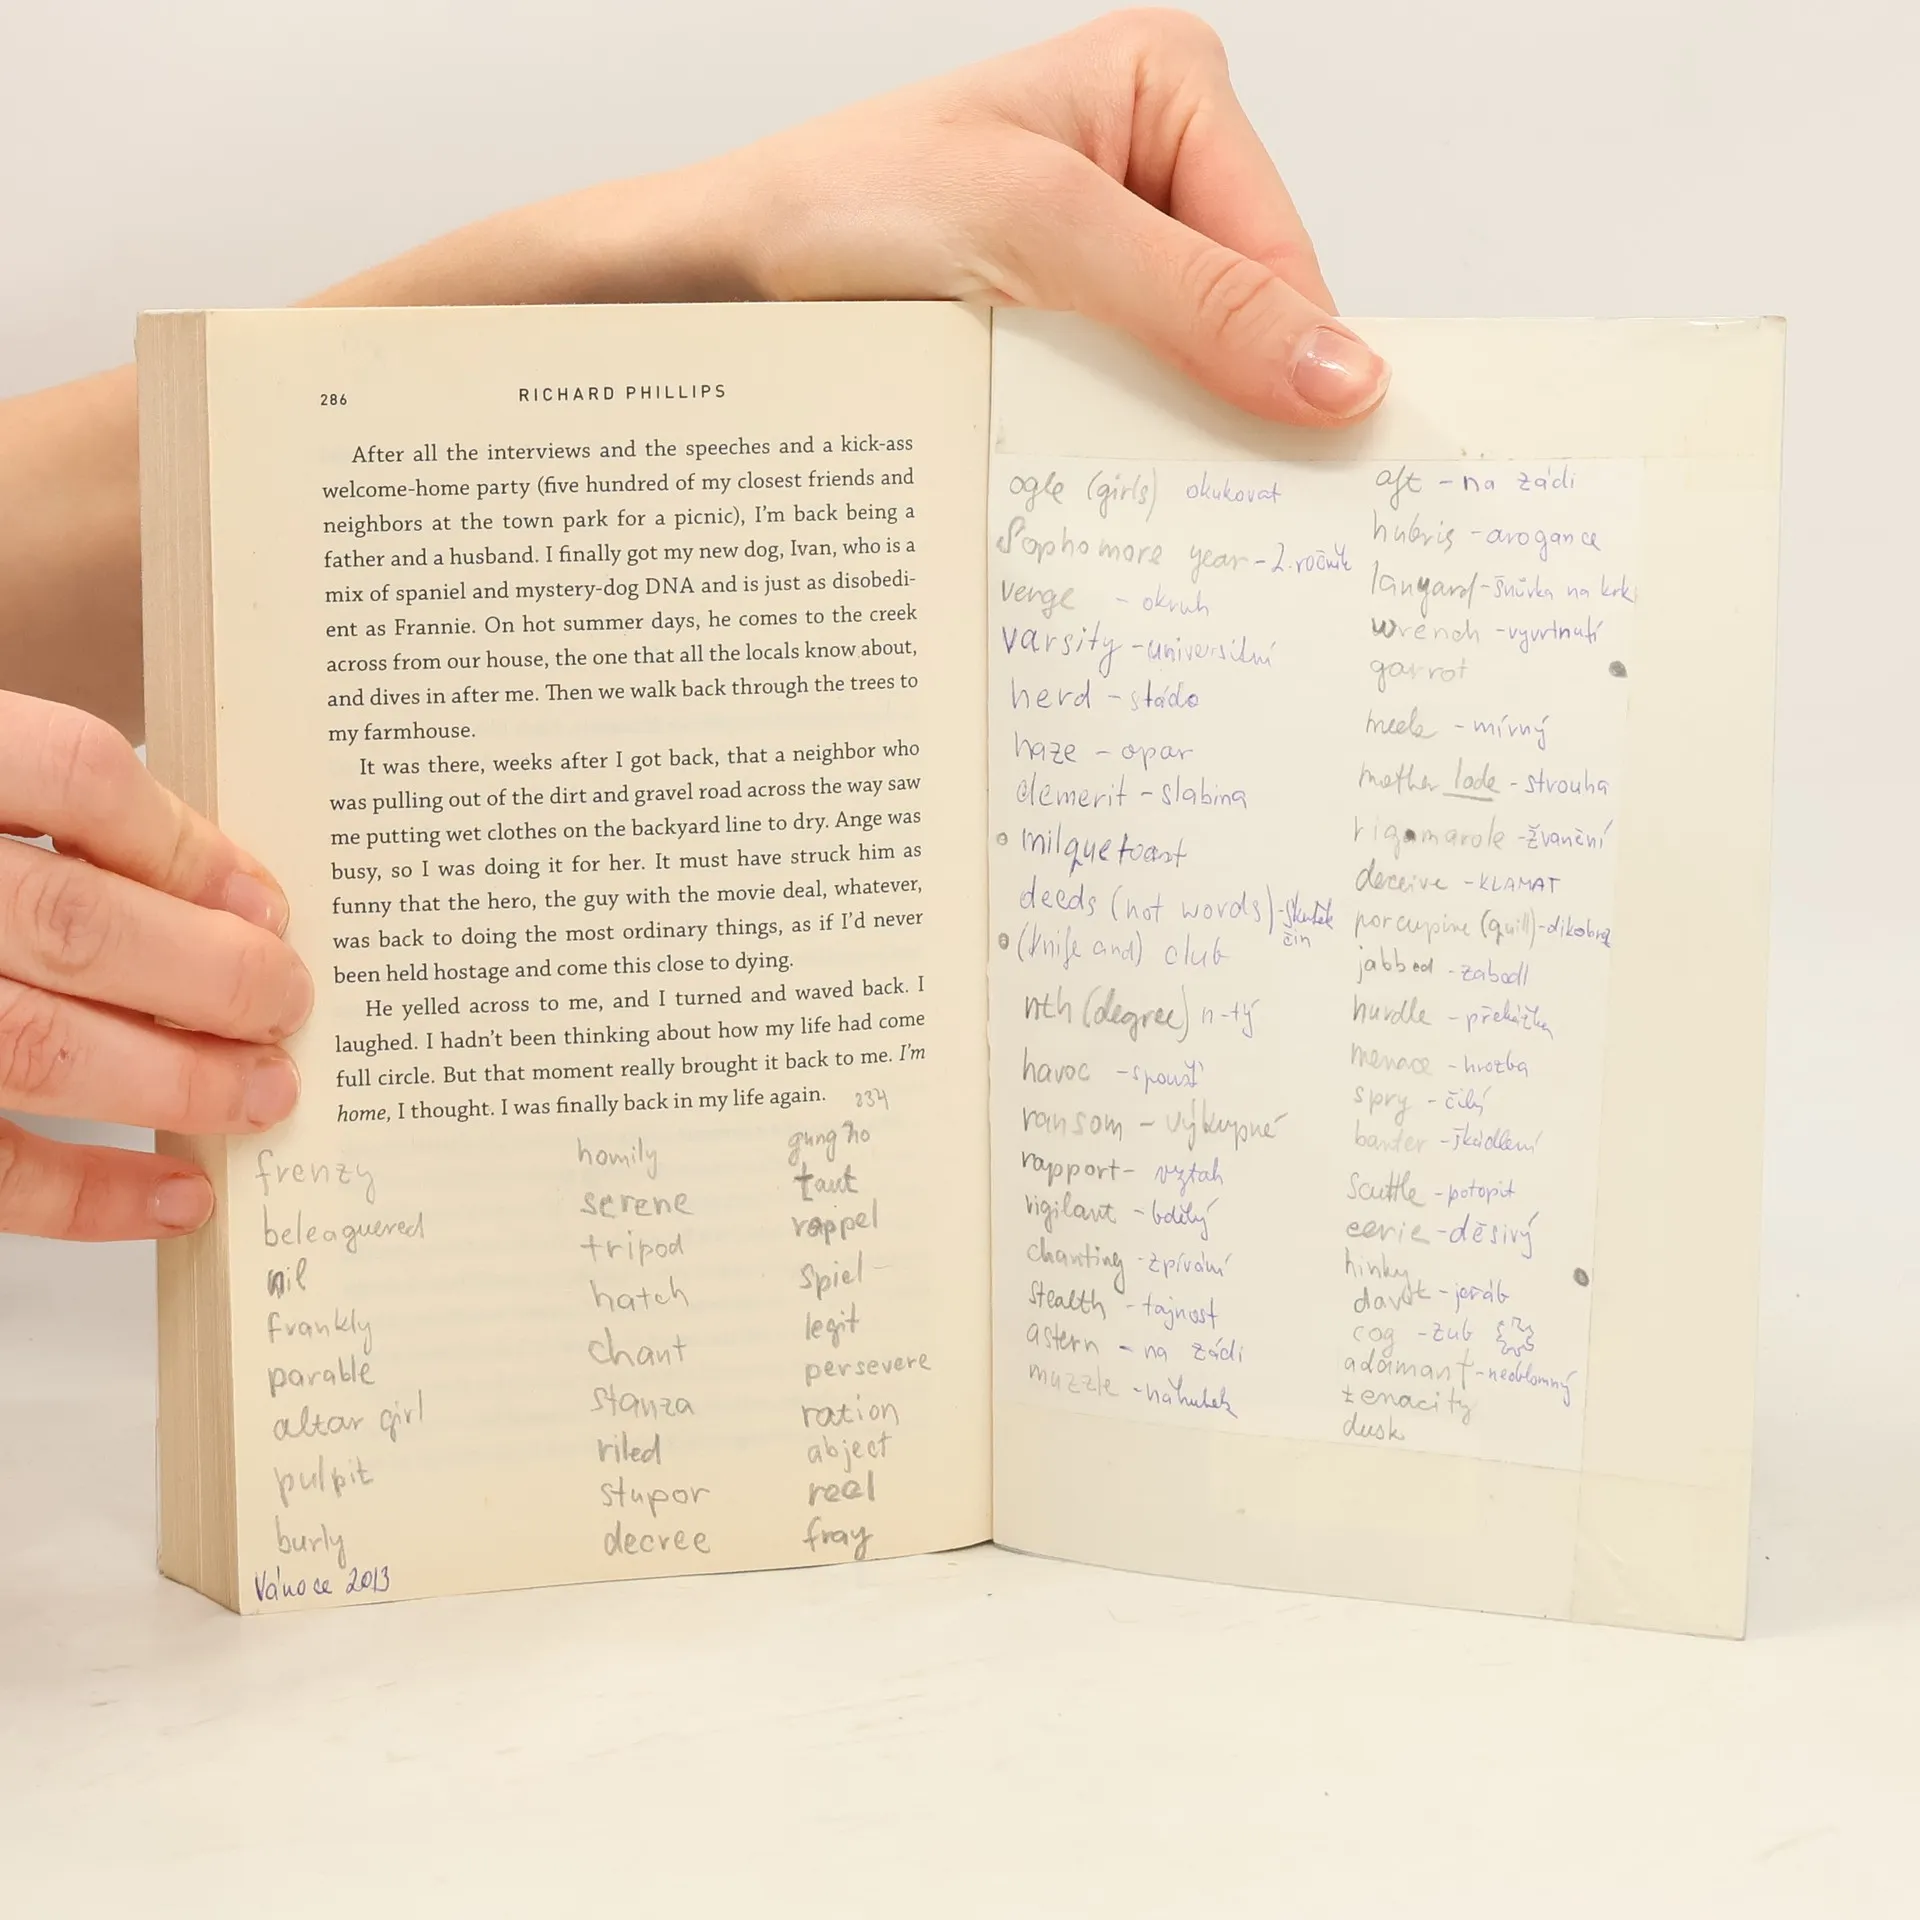 286
RICHARD PHILLIPS
After all the interviews and the speeches and a kick-ass
welcome-home party (five hundred of my closest friends and
neighbors at the town park for a picnic), I'm back being a
father and a husband. I finally got my new dog, Ivan, who is a
mix of spaniel and mystery-dog DNA and is just as disobedi-
ent as Frannie. On hot summer days, he comes to the creek
across from our house, the one that all the locals know about,
and dives in after me. Then we walk back through the trees to
my farmhouse.
It was there, weeks after I got back, that a neighbor who
was pulling out of the dirt and gravel road across the way saw
me putting wet clothes on the backyard line to dry. Ange was
busy, so I was doing it for her. It must have struck him as
funny that the hero, the guy with the movie deal, whatever,
was back to doing the most ordinary things, as if I'd never
been held hostage and come this close to dying.
He yelled across to me, and I turned and waved back. I
laughed. I hadn't been thinking about how my life had come
full circle. But that moment really brought it back to me. I'm
home, I thought. I was finally back in my life again.
234
frenzy
beleaguered
nil
frankly
parable
altar girl
pulpit
burly
Vánoce 2013
homily
serene
tripod
hatch
chant
stanza
riled
stupor
decree
gung ho
taut
rappel
spiel
legit
persevere
ration
abject
reel
fray
ogle (girls) okukovat
Sophomore year - 2. ročník
verge - okruh
varsity - universitní
herd - stádo
haze - opar
demerit - slabina
milquetoast
deeds (not words) - skutek
čin
(knife and) club
nth (degree) n-tý
havoc - spoušť
ransom - výkupné
rapport - vztah
vigilant - bdělý
chanting - zpívání
stealth - tajnost
astern - na zádi
muzzle - náhubek
aft - na zádi
hubris - arogance
lanyard - šnůrka na krk
wrench - vyvrtnutí
garrot
meek - mírný
mother lode - strouha
rigamarole - žvanění
deceive - KLAMAT
porcupine (quill) - dikobraz
jabbed - zabodl
hurdle - překážka
menace - hrozba
spry - čilý
banter - škádlení
Scuttle - potopit
eerie - děsivý
hinky
davit - jeřáb
cog - zub
adamant - neoblomný
tenacity
dusk